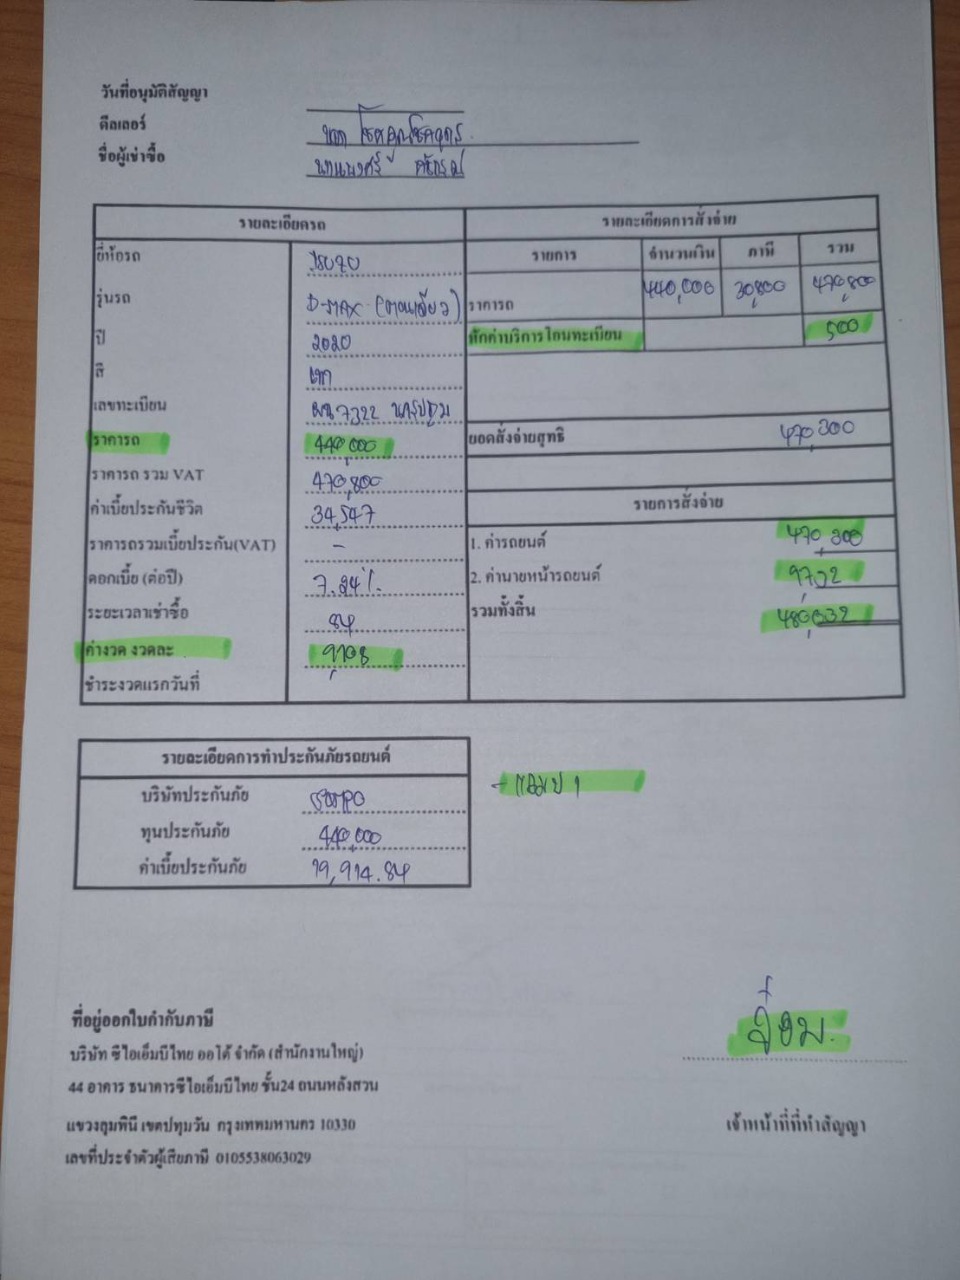 วันที่อนุมัติสัญญา
ดีลเลอร์
ชื่อผู้เช่าซื้อ
รายละเอียดรถ
ยี่ห้อรถ
รุ่นรถ D-MAX (ตอนเดียว)
ปี 2020
สี เทา
เลขทะเบียน 7322 นครปฐม
ราคารถ 440,000
ราคารถ รวม VAT 470,800
ค่าเบี้ยประกันชีวิต 34,547
ราคารถรวมเบี้ยประกัน(VAT) -
ดอกเบี้ย (ต่อปี) 7.24%
ระยะเวลาเช่าซื้อ 84
ค่างวด งวดละ 9,108
ชำระงวดแรกวันที่
รายละเอียดการสั่งจ่าย
รายการ จำนวนเงิน ภาษี รวม
ราคารถ 440,000 30,800 470,800
หักค่าบริการโอนทะเบียน 500
ยอดสั่งจ่ายสุทธิ 470,300
รายการสั่งจ่าย
1. ค่ารถยนต์ 470,300
2. ค่านายหน้ารถยนต์ 9,732
รวมทั้งสิ้น 480,032
รายละเอียดการทำประกันภัยรถยนต์
บริษัทประกันภัย
ทุนประกันภัย 440,000
ค่าเบี้ยประกันภัย 19,914.84
ที่อยู่ออกใบกำกับภาษี
บริษัท ซีไอเอ็มบีไทย ออโต้ จำกัด (สำนักงานใหญ่)
44 อาคาร ธนาคารซีไอเอ็มบีไทย ชั้น24 ถนนหลังสวน
แขวงลุมพินี เขตปทุมวัน กรุงเทพมหานคร 10330
เลขที่ประจำตัวผู้เสียภาษี 0105538063029
เจ้าหน้าที่ที่ทำสัญญา